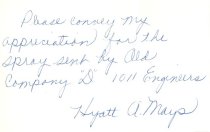 Please convey my
appreciation for the
spray sent by Old
Company "D" 1011 Engineers
Hyatt A. Mays